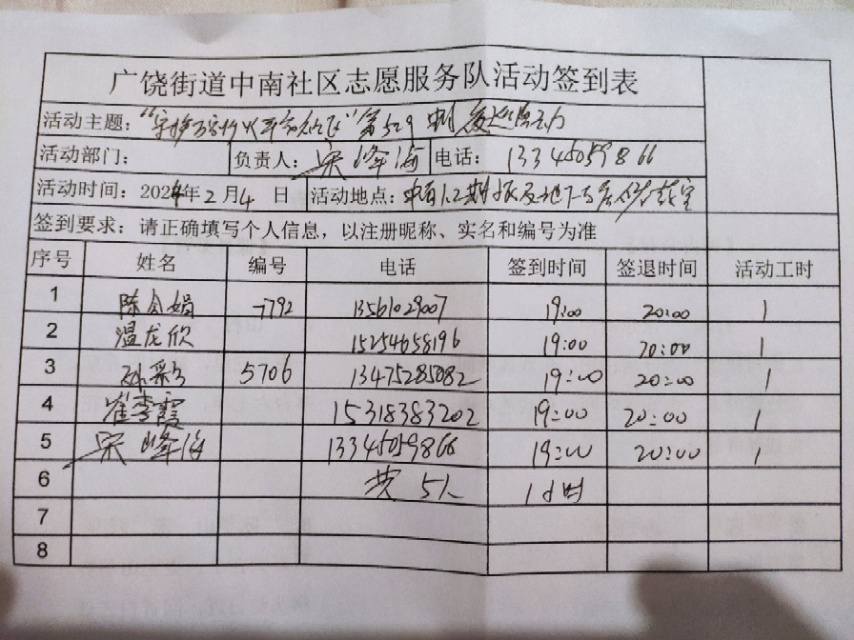 广饶街道中南社区志愿服务队活动签到表
活动主题：“守护万家灯火平安社区”第529期夜巡活动
活动部门： 负责人：宋峰海 电话：13345059866
活动时间：2024年2月4日 活动地点：中南1.2期
签到要求：请正确填写个人信息，以注册昵称、实名和编号为准
序号 姓名 编号 电话 签到时间 签退时间 活动工时
1 陈令娟 7792 13561029007 19:00 20:00 1
2 温龙欣 15254658196 19:00 20:00 1
3 孙彩 5706 13475285082 19:00 20:00 1
4 崔季霞 15318383202 19:00 20:00 1
5 宋峰海 13345059866 19:00 20:00 1
6 共5人 1小时
7
8